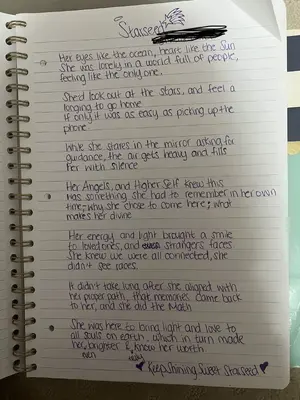 Starseed
Her eyes like the ocean, heart like the Sun
She was lonely in a world full of people,
feeling like the only one.
She'd look out at the stars, and feel a
longing to go home
If only it was as easy as picking up the
phone.
While she stares in the mirror asking for
guidance, the air gets heavy and fills
her with silence
Her Angels, and Higher Self knew this
was something she had to remember in her own
time; why she chose to come here; what
makes her divine
Her energy and light brought a smile
to loved ones, and strangers faces
She knew we were all connected, she
didn't see races.
It didn't take long after she aligned with
her proper path, that memories came back
to her, and she did the Math
She was here to bring light and love to
all souls on earth, which in turn made
her brighter & know her worth
Keep Shining Sweet Starseed